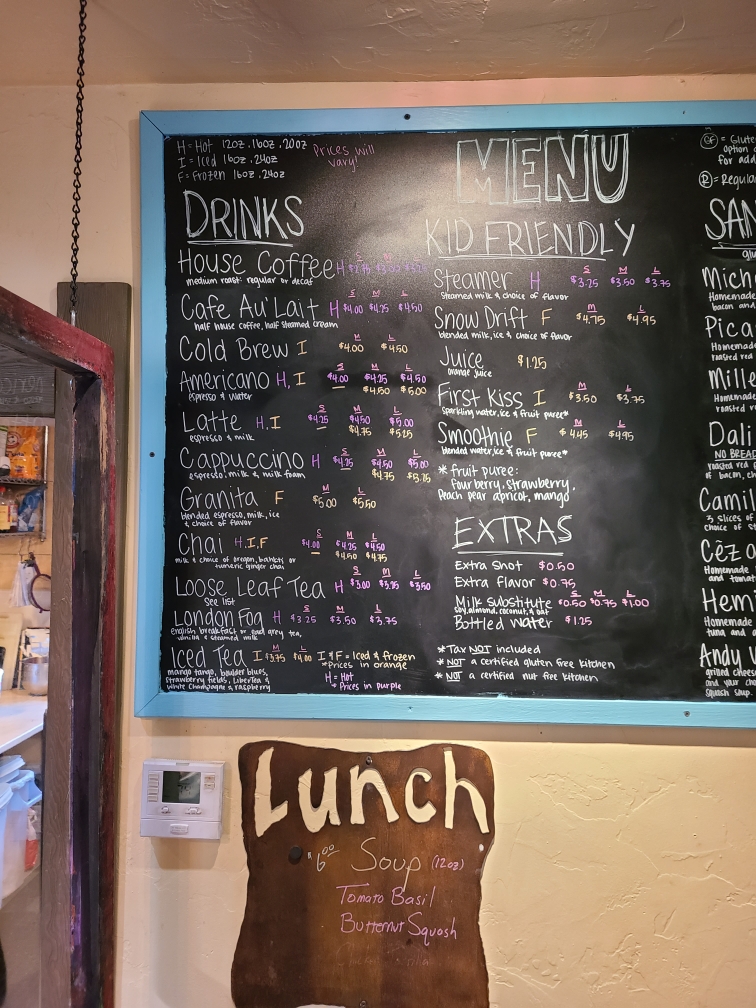 H = Hot 12oz. 16oz. 20oz
I = Iced 16oz. 24oz
F = frozen 16oz. 24oz
Prices will
vary!
DRINKS
House Coffee H
medium roast: regular or decaf
S M L
Cafe Au'Lait H $4.00 $4.25 $4.50
half house coffee, half steamed cream
Cold Brew I $4.00 $4.50
S M L
Americano H, I $4.00 $4.25 $4.50
espresso & water $4.50 $5.00
S M L
Latte H, I $4.25 $4.50 $5.00
espresso & milk $4.75 $5.25
S M L
Cappuccino H $4.25 $4.50 $5.00
espresso, milk & milk foam $4.75 $5.25
Granita F $5.00 $5.50
blended espresso, milk, ice
& choice of flavor
S M L
Chai H, I, F $4.00 $4.25 $4.50
$4.50 $4.75
milk & choice of oregon, bahktis or
tumeric ginger chai
S M L
Loose Leaf Tea H $3.00 $3.25 $3.50
See list
S M L
London Fog H $3.25 $3.50 $3.75
english breakfast or earl grey tea,
vanilla & steamed milk
M L
Iced Tea I $3.75 $4.00
mango tango, boulder blues,
strawberry fields, LiberTea &
white champagne & raspberry
I & F = Iced & frozen
*Prices in orange
H = Hot
*Prices in purple
MENU
KID FRIENDLY
S M L
Steamer H $3.25 $3.50 $3.75
Steamed milk & choice of flavor
M L
Snow Drift F $4.75 $4.95
blended milk, ice & choice of flavor
Juice $1.25
orange juice
M L
First Kiss I $3.50 $3.75
Sparkling water, ice & fruit puree*
M L
Smoothie F $4.45 $4.95
blended water, ice & fruit puree*
* fruit puree:
four berry, strawberry,
Peach pear apricot, mango
EXTRAS
Extra shot $0.50
Extra flavor $0.75
S M L
Milk substitute $0.50 $0.75 $1.00
soy, almond, coconut, & oat
Bottled water $1.25
*Tax NOT included
*NOT a certified gluten free kitchen
*NOT a certified nut free kitchen
GF = Glute
option
for add
R = Regula
SAN
glu
Mich
Homemade
bacon and
Pica
Homemade
roasted red
Mille
Homemade
roasted r
Dali
NO BREAD
roasted red
of bacon, ch
Camil
3 slices of
choice of
Cēzo
Homemade
and tomat
Hemi
Homemade
tuna and
Andy W
grilled chees
and your cho
Squash soup.
Lunch
$6.00 Soup (12oz)
Tomato Basil
Butternut Squash